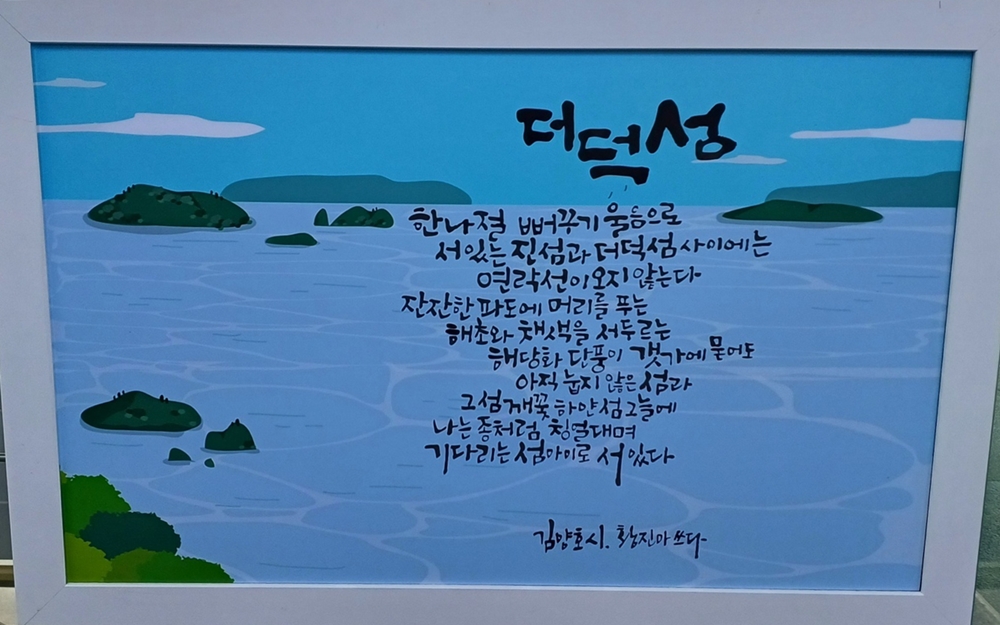 더덕섬
한나절 뻐꾸기 울음으로
서있는 진섬과 더덕섬 사이에는
연락선이 오지 않는다
잔잔한 파도에 머리를 푸는
해초와 채색을 서두르는
해당화 단풍이 갯가에 묻어도
아직 눕지 않은 섬과
그섬 깨꽃 하얀 섬그늘에
나는 종처럼 칭얼대며
기다리는 섬아이로 서 있다
김양호 시. 황진아 쓰다